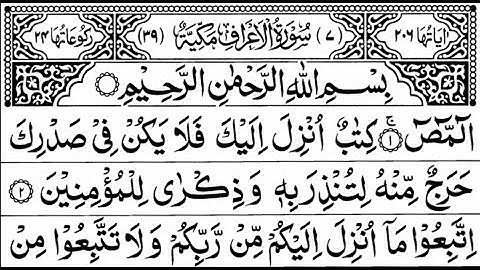 اٰيَاتُهَا ٢٠٦ (٧) سُوْرَةُ الْاَعْرَافِ مَكِّيَّةٌ (٣٩) رُكُوْعَاتُهَا ٢٤
بِسْمِ اللّٰهِ الرَّحْمٰنِ الرَّحِيْمِ
الٓمّٓصٓ ۚ ﴿١﴾ كِتٰبٌ اُنْزِلَ اِلَيْكَ فَلَا يَكُنْ فِىْ صَدْرِكَ
حَرَجٌ مِّنْهُ لِتُنْذِرَ بِهٖ وَ ذِكْرٰى لِلْمُؤْمِنِيْنَ ﴿٢﴾
اِتَّبِعُوْا مَاۤ اُنْزِلَ اِلَيْكُمْ مِّنْ رَّبِّكُمْ وَ لَا تَتَّبِعُوْا مِنْ